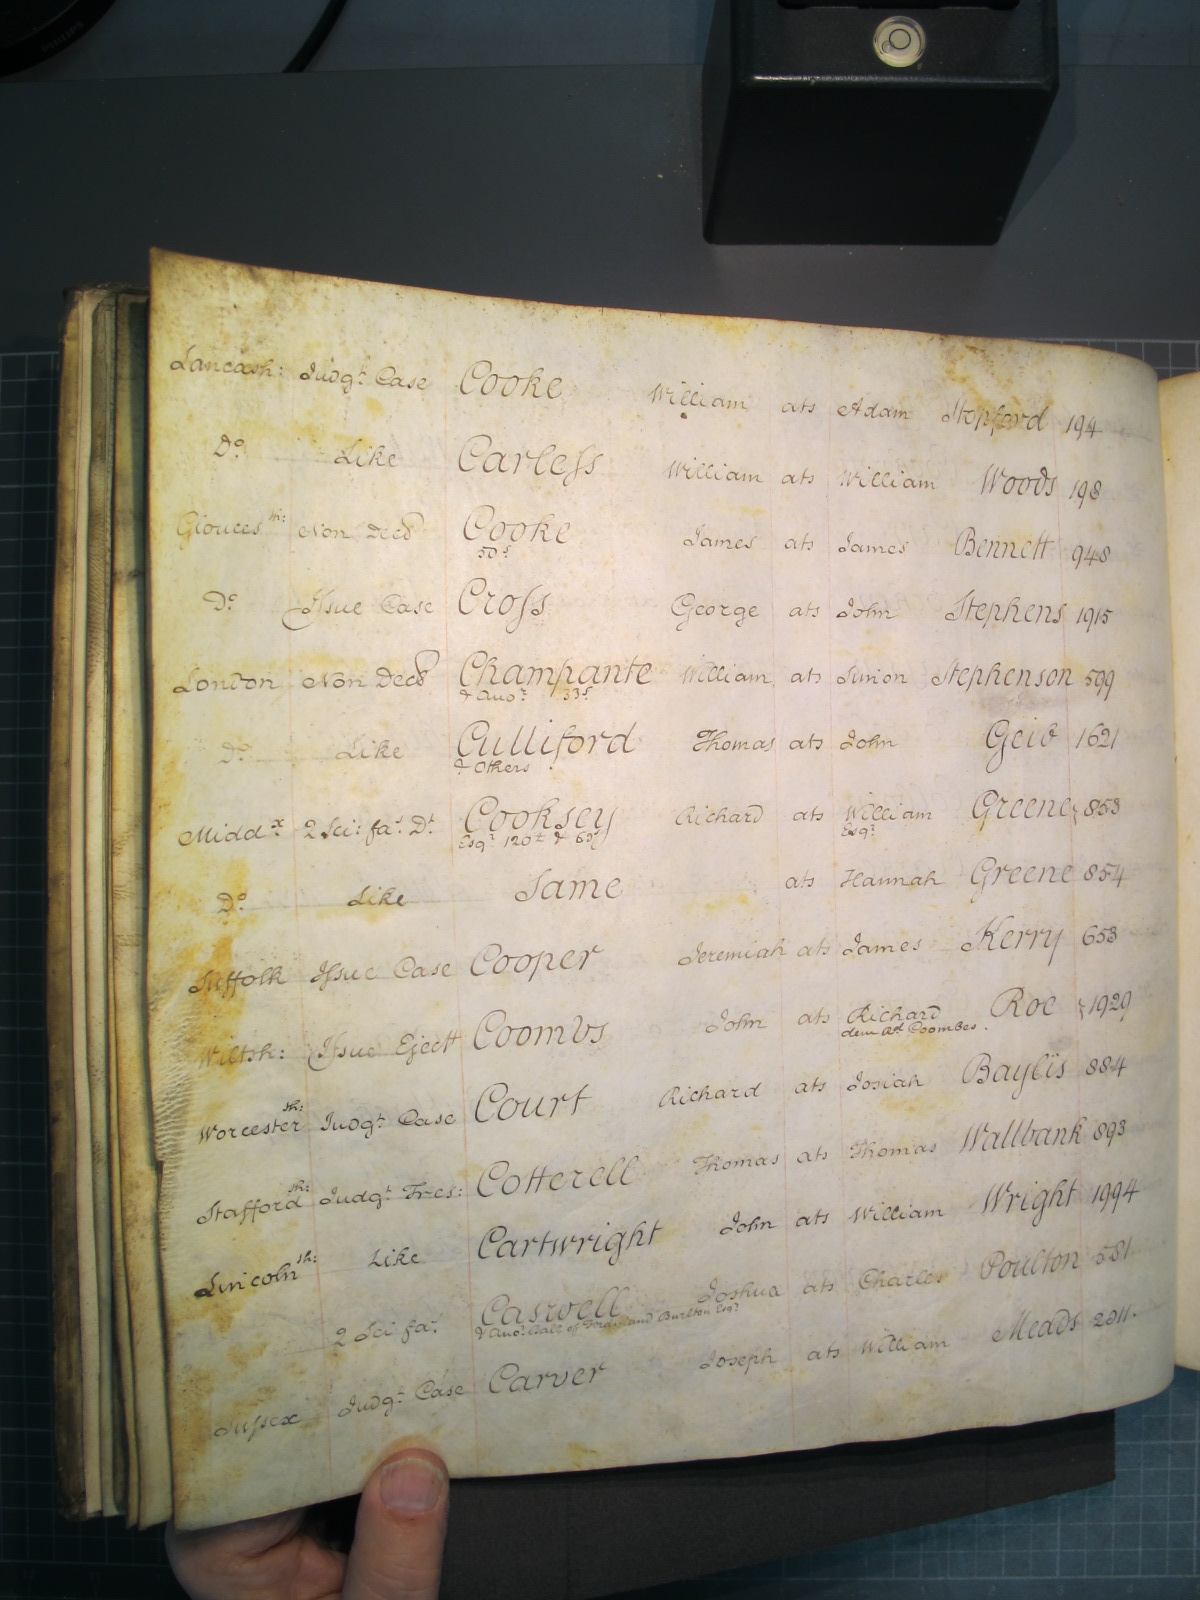 Lancash: Judgt. Case Cooke William ats Adam Stopford 194
Do. Like Carless William ats William Woods 198
Glouces sh: Non Decd Cooke James ats James Bennett 948
50s
Do. Issue Case Cross George ats John Stephens 1915
London Non Decd Champante William ats Simon Stephenson 599
& Anor. 33s
Do. Like Culliford Thomas ats John Geib 1621
& Others
Middx. 2 Sci: fas. Dt. Cooksey Richard ats William Greene 853
Esqr. 120£ & 63s Esqr.
Do. Like Same ats Hannah Greene 854
Suffolk Issue Case Cooper Jeremiah ats James Kerry 653
Wiltsh: Issue Ejectt Coombs John ats Richard Roe 1929
dem Coombes.
Worcester sh: Judgt. Case Court Richard ats Josiah Baylis 884
Stafford sh: Judgt. Tres: Cotterell Thomas ats Thomas Wallbank 893
Lincoln sh: Like Cartwright John ats William Wright 1994
2 Sci fas. Caswell Joshua ats Charles Poulton 581
& Anor. Bail of Burlton Esqr.
Sussex Judgt. Case Carver Joseph ats William Meads 2011.